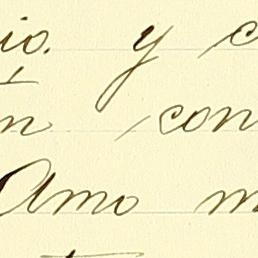 io. y c
ón con
Amo m